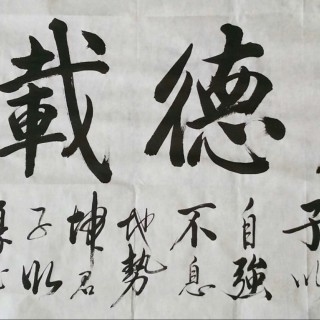 德載
子以
自強
不息
地勢
坤君
子以